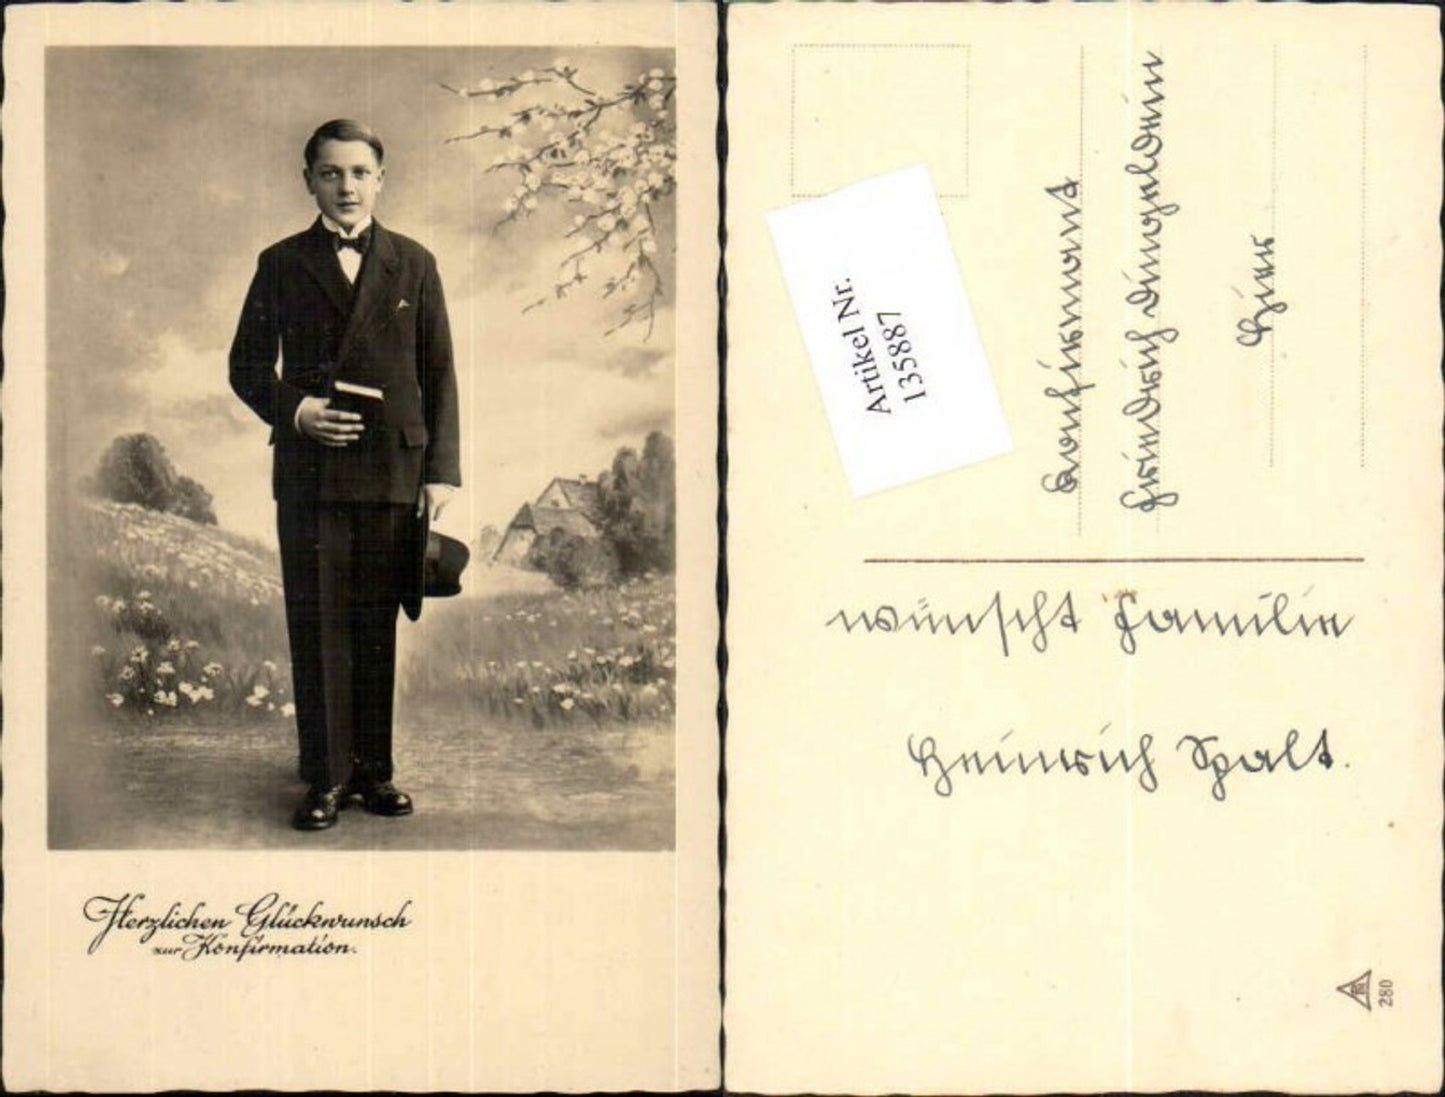 Herzlichen Glückwunsch
zur Konfirmation.
Artikel Nr.
135887
Konfirmand
Heinrich
Hier
wünscht Familie
Heinrich Spalt.
280